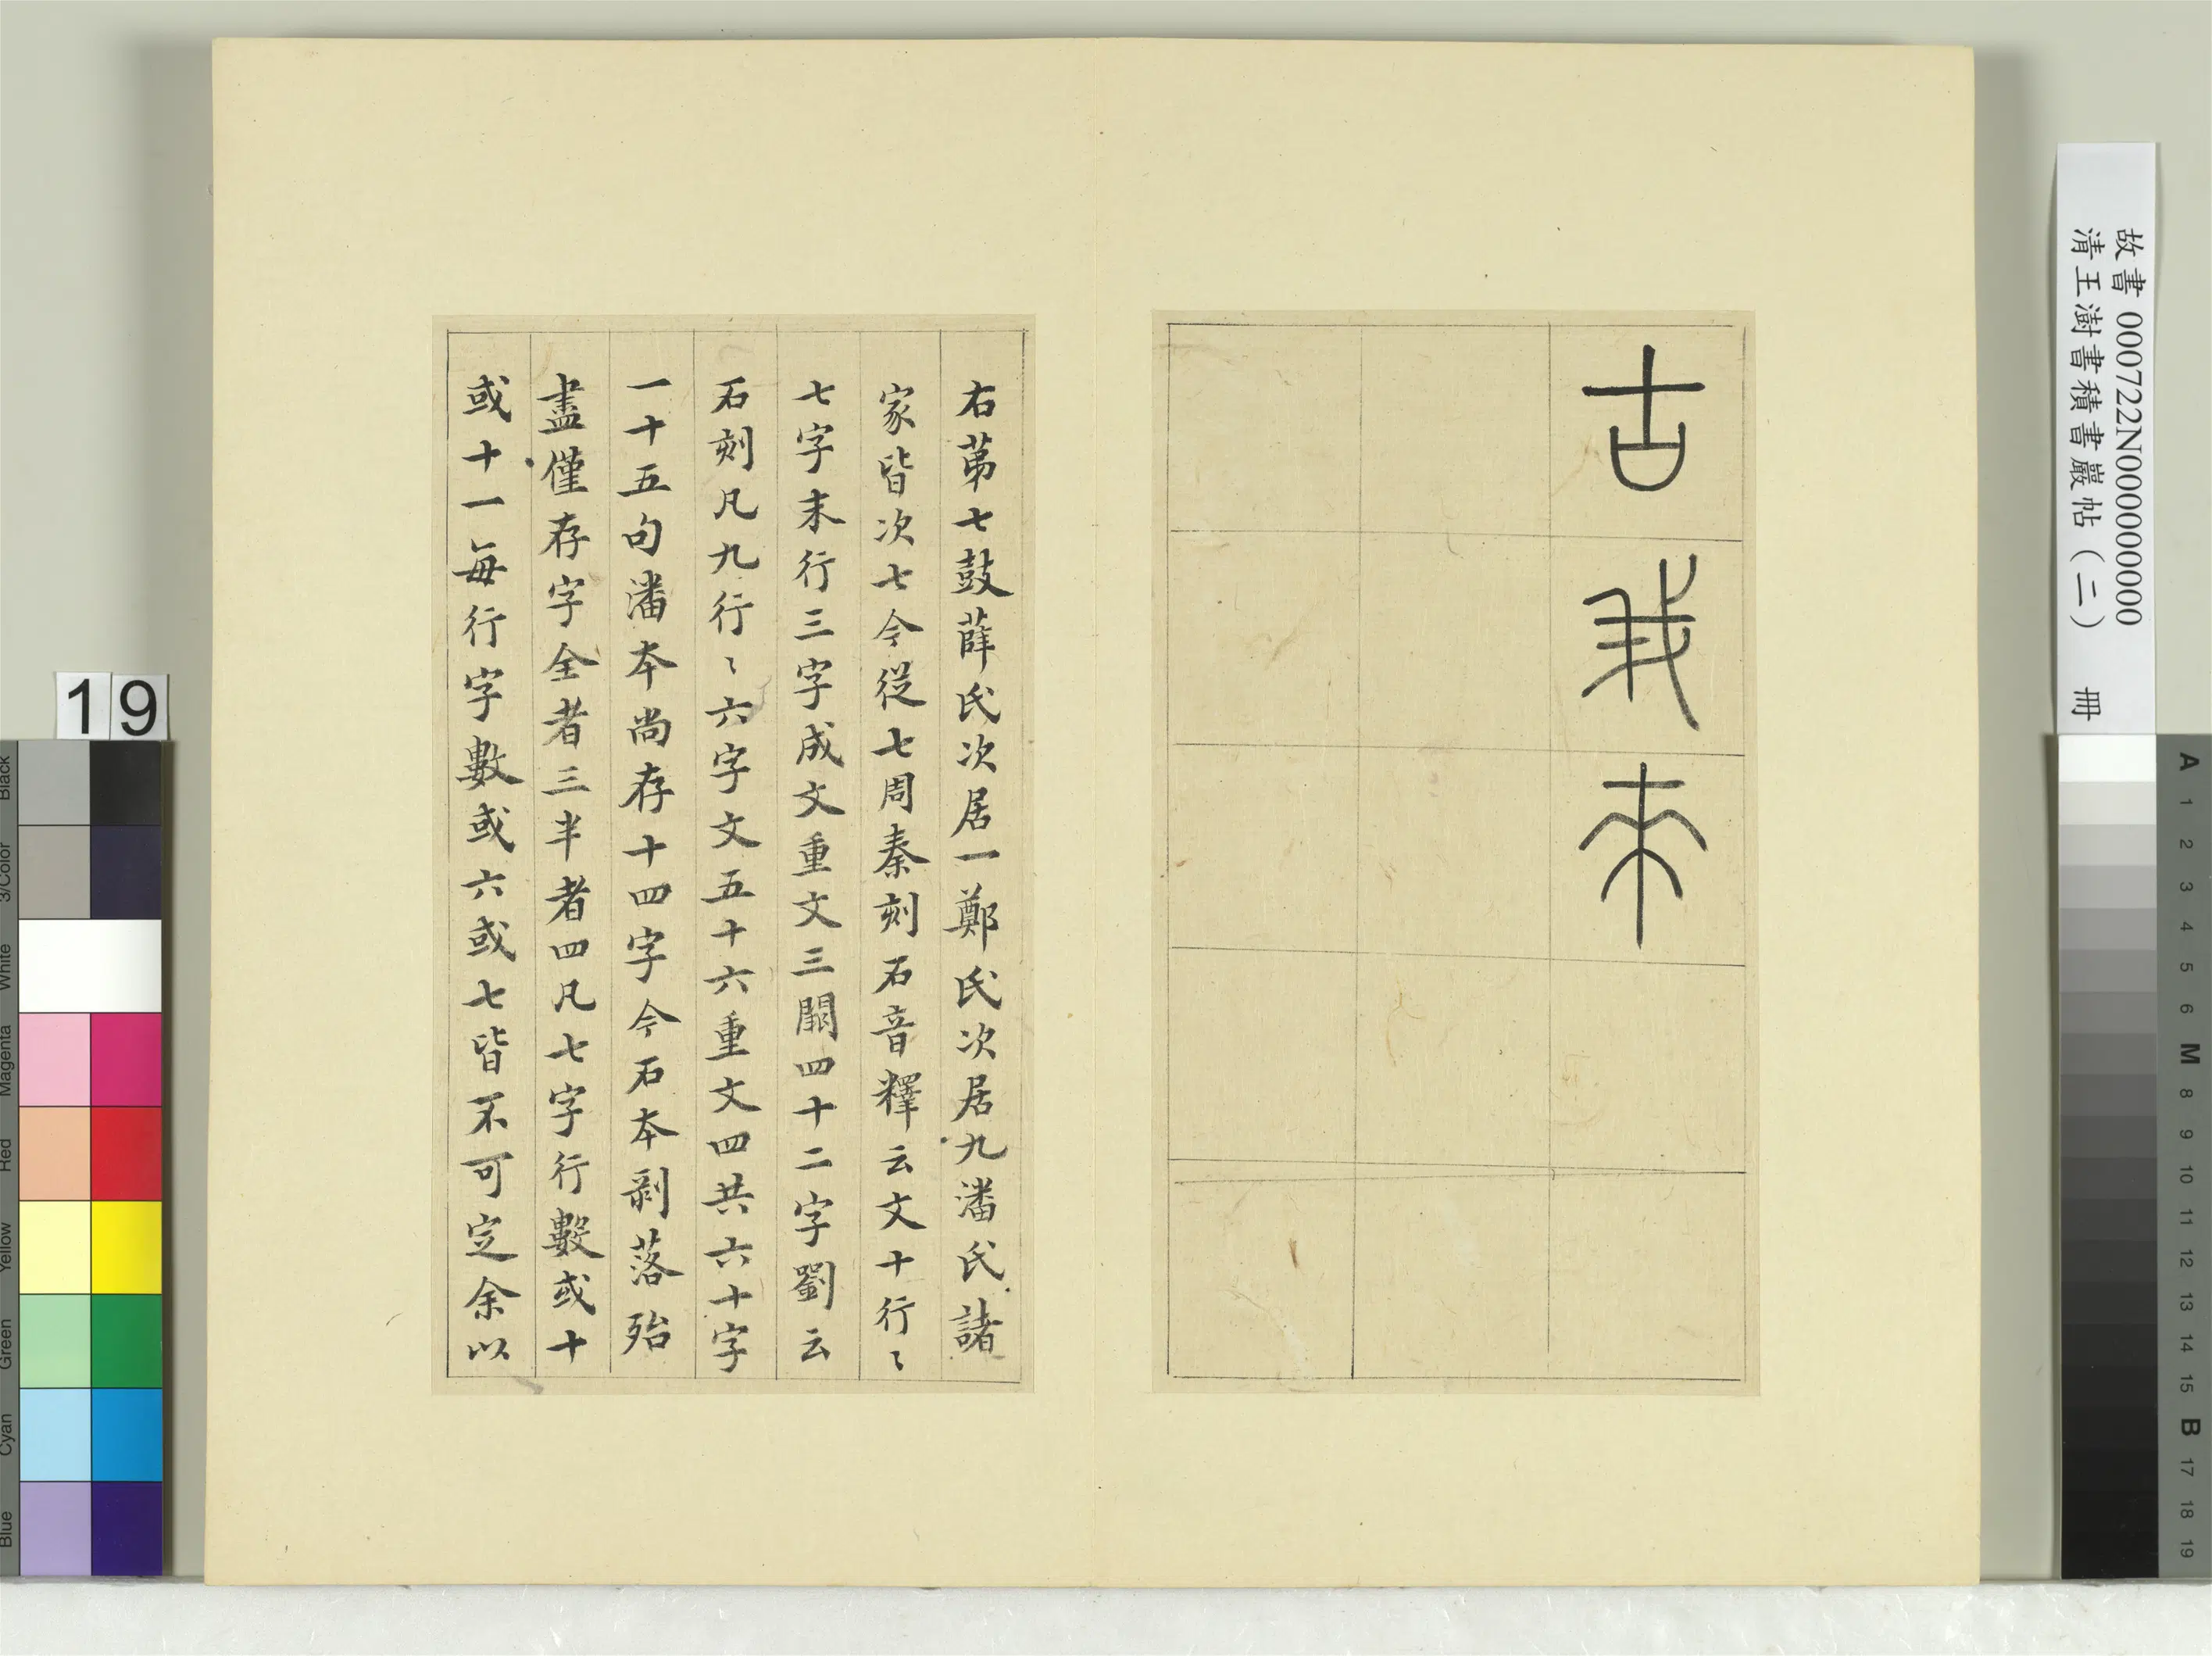 古我來
右苐七鼓薛氏次居一鄭氏次居九潘氏諸
家皆次七今從七周秦刻石音釋云文十行〻
七字末行三字成文重文三闕四十二字劉云
石刻凡九行〻六字文五十六重文四共六十字
一十五句潘本尚存十四字今石本剥落殆
盡僅存字全者三半者四凡七字行數或十
或十一每行字數或六或七皆不可定余以
故書 000722N000000000
清王澍書積書巖帖（二） 冊
19
Black
3/Color
White
Magenta
Red
Yellow
Green
Cyan
Blue
A
1
2
3
4
5
6
M
8
9
10
11
12
13
14
15
B
17
18
19